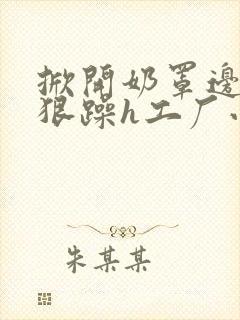 掀開奶罩邊
狠躁h工厂
朱某某